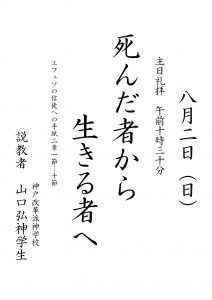 八月二日（日）
主日礼拝　午前十時三十分
死んだ者から
生きる者へ
エフェソの信徒への手紙二章一節―十節
神戸改革派神学校
説教者　山口弘神学生